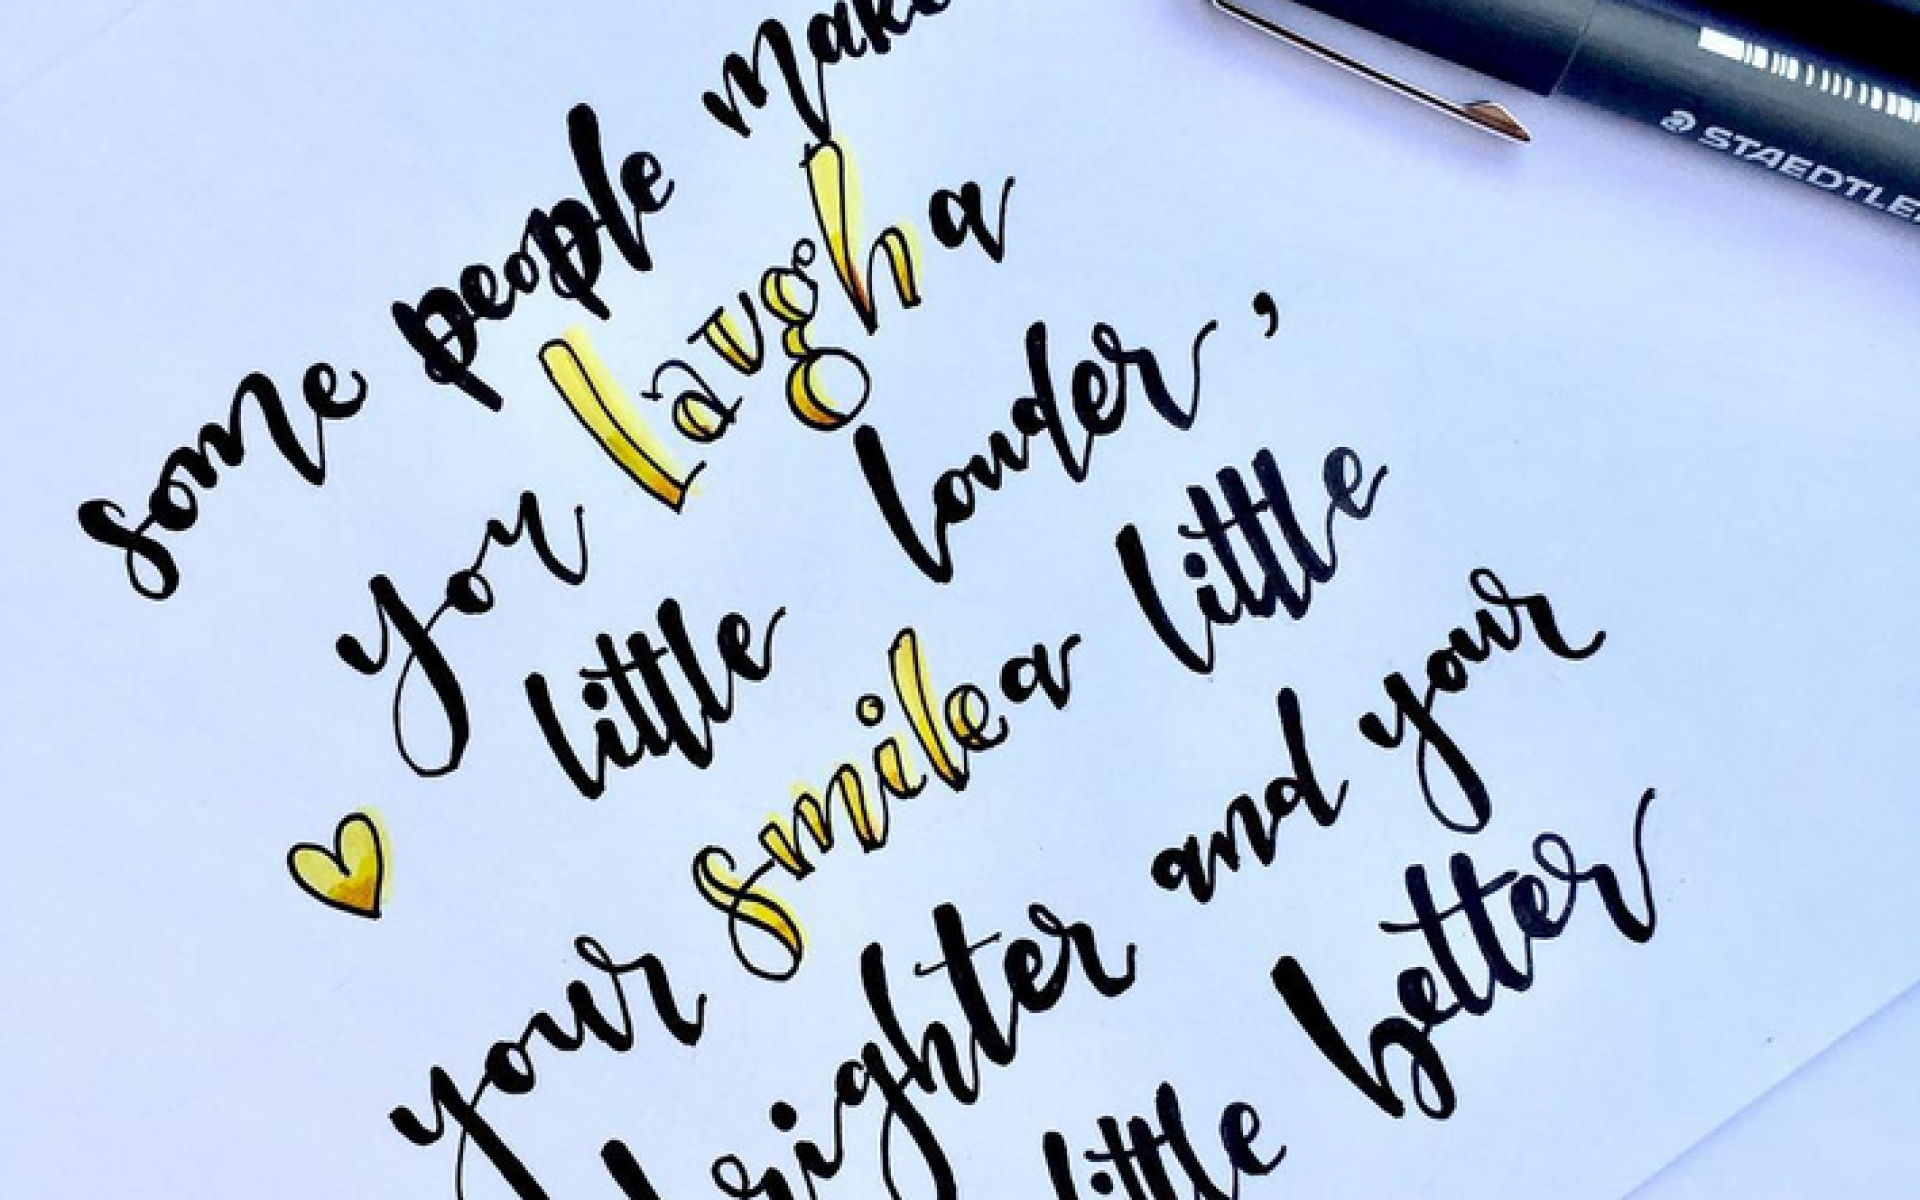 some people make
you laugh a
little louder,
your smile a little
brighter and your
little better
STAEDTLER